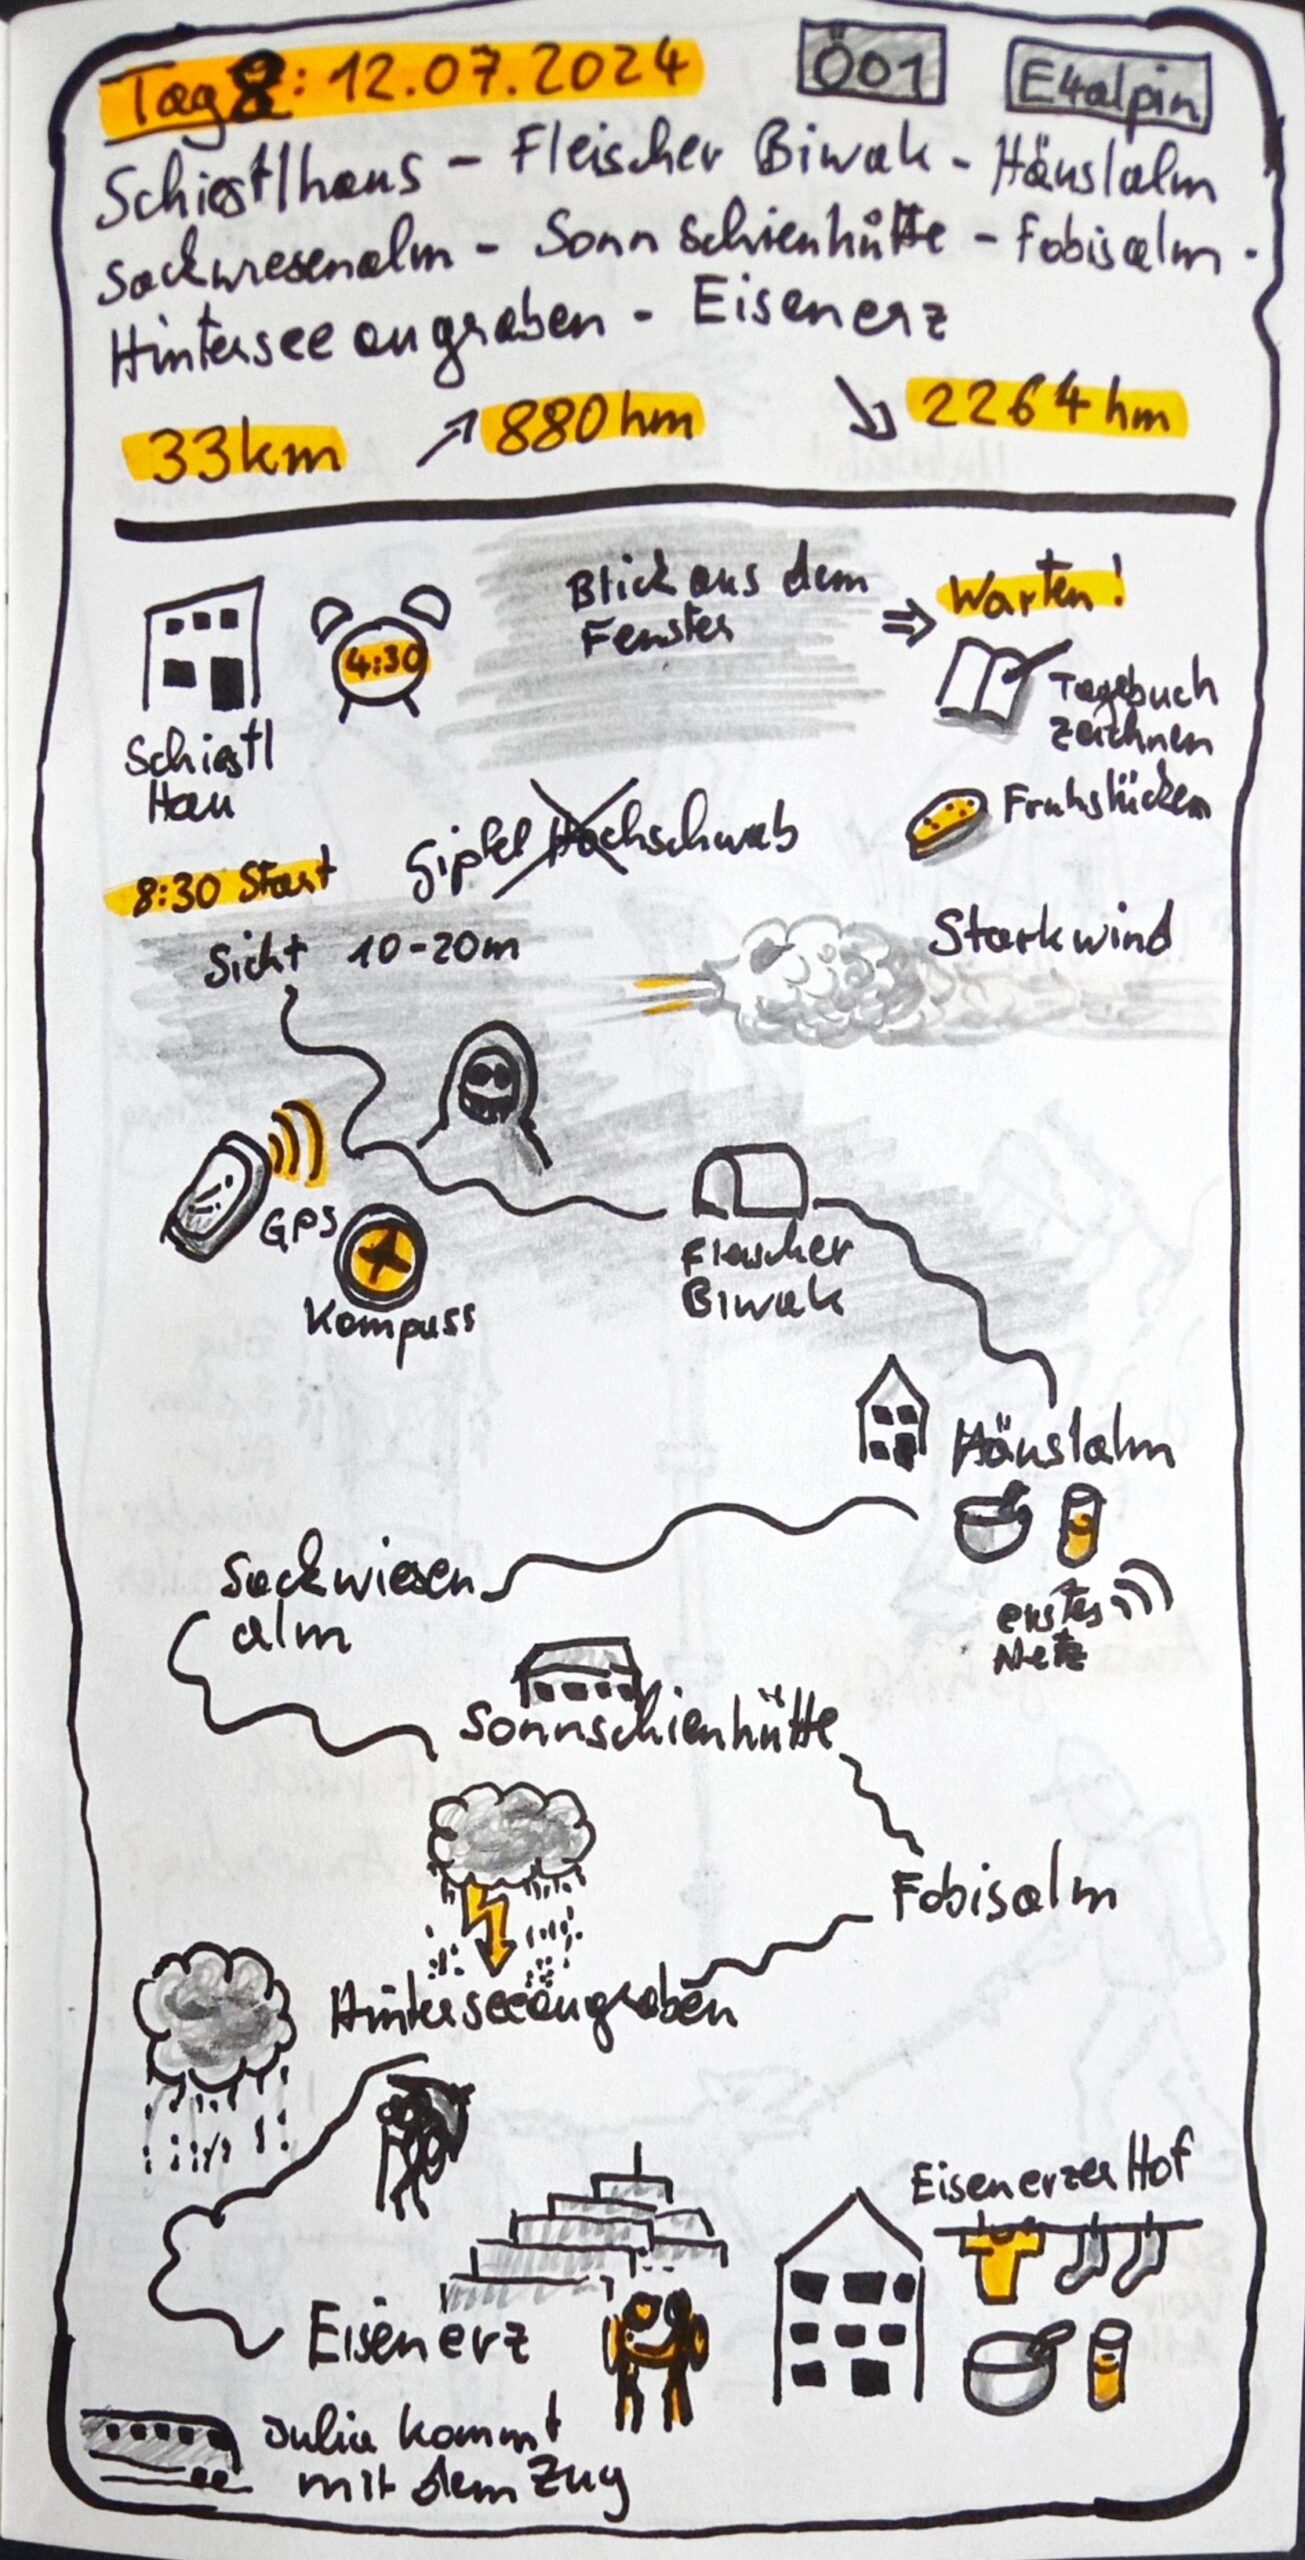 Tag 8: 12.07.2024
Ö01
E4alpin
Schiestlhaus - Fleischer Biwak - Häuslalm
Sackwiesenalm - Sonnschienhütte - Fobisalm -
Hinterseeaugraben - Eisenerz
33km ↗ 880hm ↘ 2264hm
4:30
Blick aus dem
Fenster
⇒ Warten!
Tagebuch
zeichnen
Schiestl
Hau
Frühstücken
Gipfel Hochschwab
8:30 Start
Sicht 10-20m
Starkwind
GPS
Kompass
Fleischer
Biwak
Häuslalm
erstes
Netz
Sackwiesen
alm
Sonnschienhütte
Fobisalm
Hinterseeaugraben
Eisenerzer Hof
Eisenerz
Julia kommt
mit dem Zug